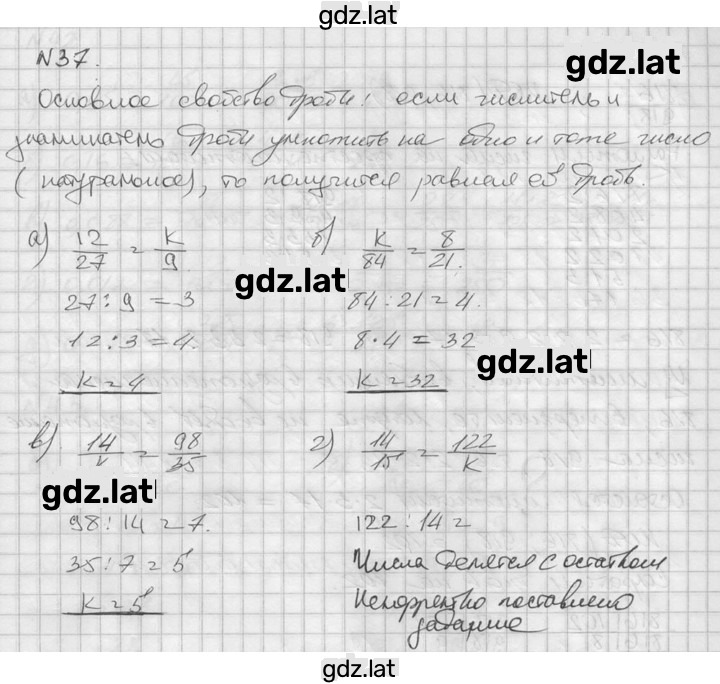 gdz.lat
N37.
gdz.lat
Основное свойство дроби: если числитель и
знаминатель дроби умножить на одно и тоже число
(натуральное), то получится равная ей дробь.
а) 12/27 = k/9
б) k/84 = 8/21.
gdz.lat
27:9 = 3
84:21 = 4.
12:3 = 4.
8·4 = 32
gdz.lat
k = 4
k = 32
в) 14/k = 98/35
г) 14/15 = 122/k
gdz.lat
98:14 = 7.
122:14 =
35:7 = 5
Числа делятся с остатком
k = 5
Некорректно поставлено
задание
gdz.lat